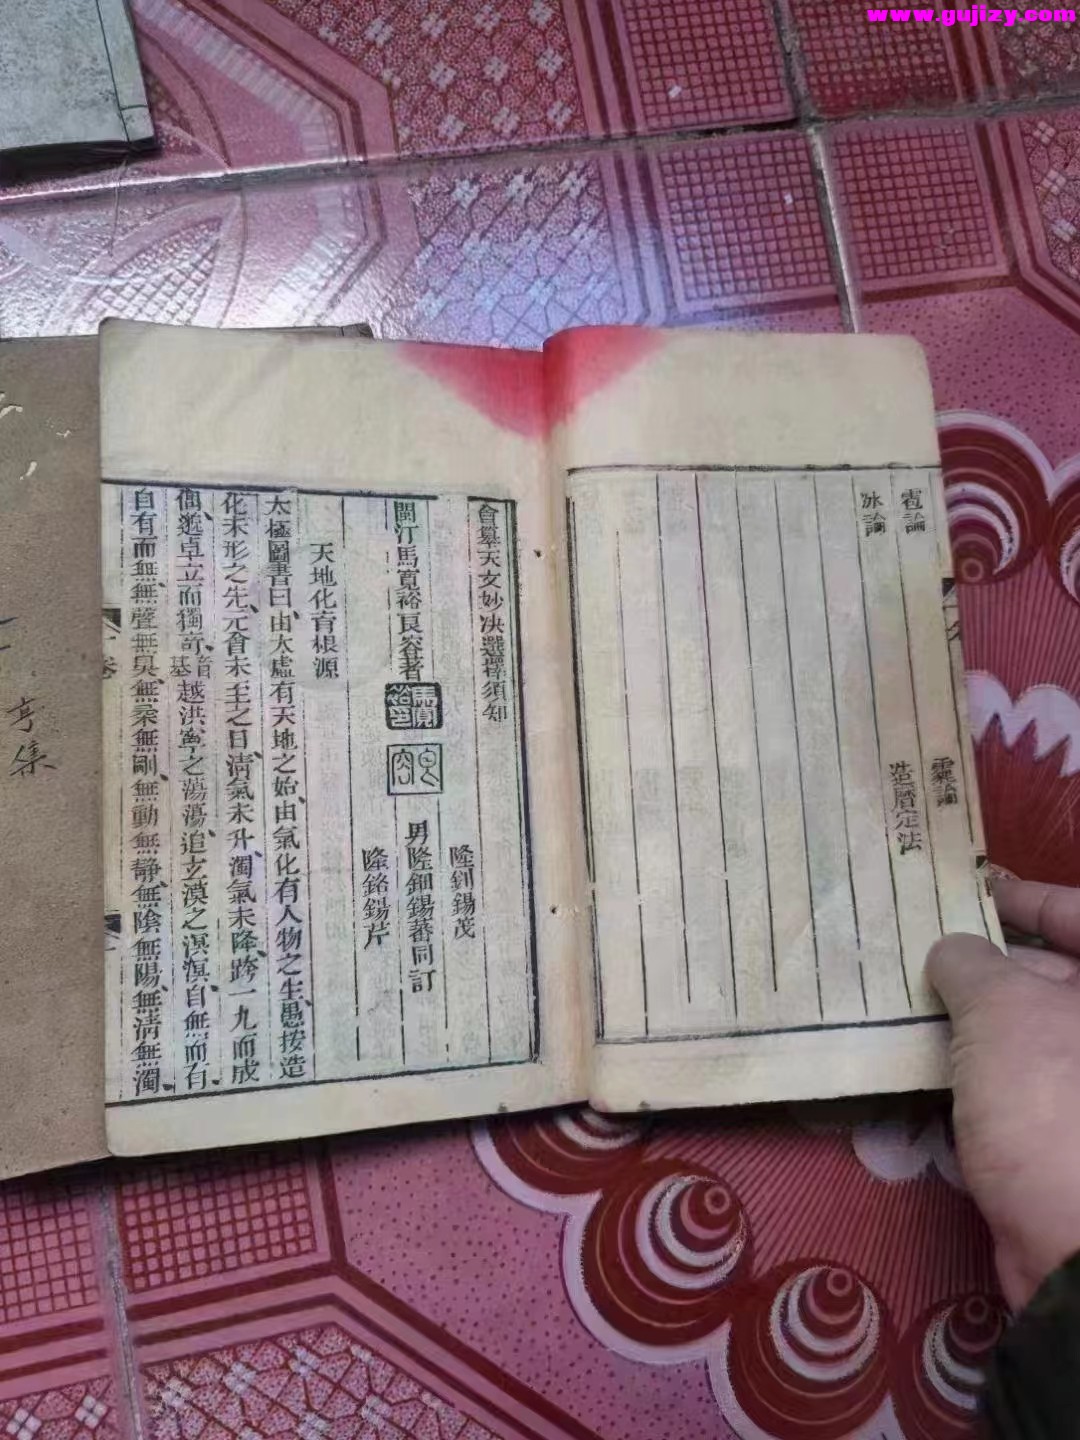 www.gujizy.com
雹論
霾論
冰論
造曆定法
會纂天文妙决選擇須知
隆釧錫茂
閩汀馬寬裕良容著
男隆鈿錫蕃同訂
隆銘錫芹
天地化育根源
太極圖書曰、由太虛有天地之始、由氣化有人物之生、愚按造
化未形之先、元會未至之日、淸氣未升、濁氣未降、跨一九而成
卓立而獨奇、越洪寧之蕩蕩、追玄漠之溟溟、自無而有、
自有而無、無聲無臭、無柔無剛、無動無靜、無陰無陽、無淸無濁、
卷一
亨集